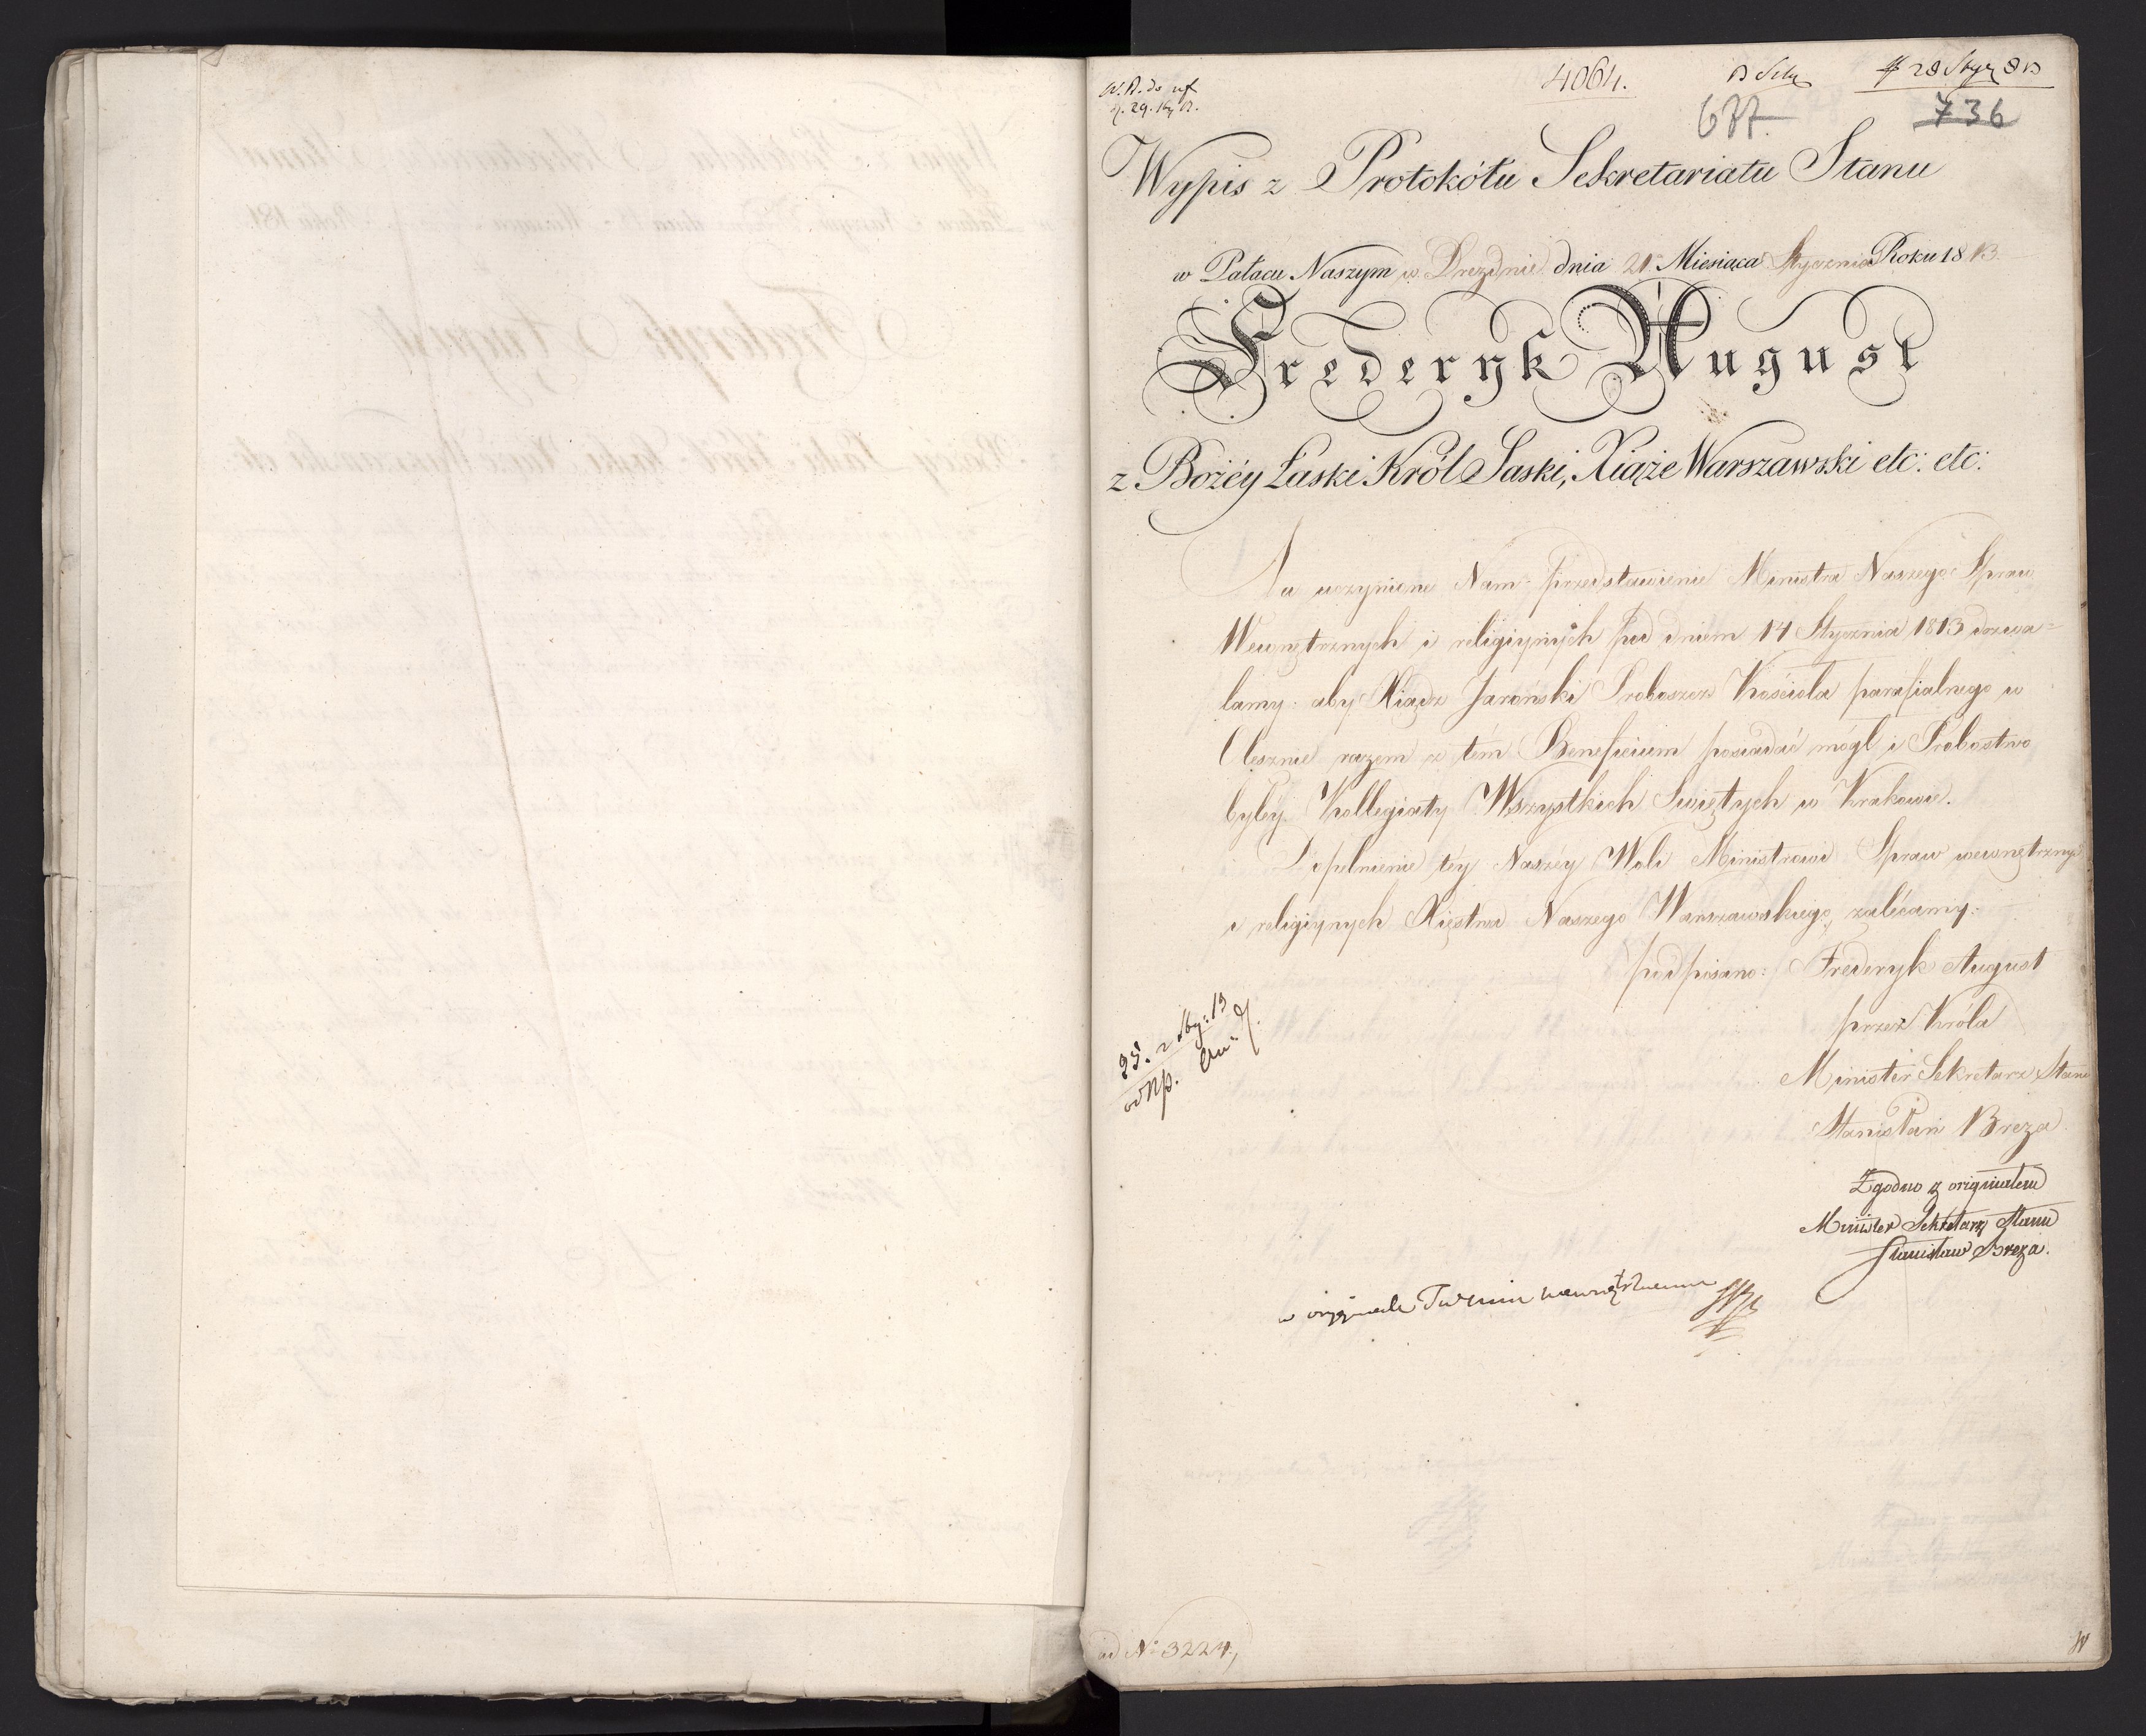 4064.
736
Wypis z Protokółu Sekretariatu Stanu
w Pałacu Naszym w Dreźnie dnia 21 Miesiąca Stycznia Roku 1813
Frederyk August
z Bożéy Łaski Król Saski, Xiąże Warszawski etc: etc:
Na uczynione Nam przedstawienie Ministra Naszego Spraw
Wewnętrznych i religiynych pod dniem 14 Stycznia 1813 dozwa=
lamy: aby Xiądz Jaroński Proboszcz Kościoła parafialnego w
Olesznie razem z tém Beneficium posiadać mógł i Probostwo
byłéy Kollegiaty Wszystkich Swiętych w Krakowie.
Dopełnienie téy Naszéy Woli Ministrowi Spraw wewnętrznych
i religiynych Xięstwa Naszego Warszawskiego, zalécamy.
podpisano: Frederyk August
przez Króla
Minister Sekretarz Stanu
Stanisław Breza
Zgodno z originałem
Minister Sekretarz Stanu
Stanisław Breza.
w oryginale
ad No 3224,